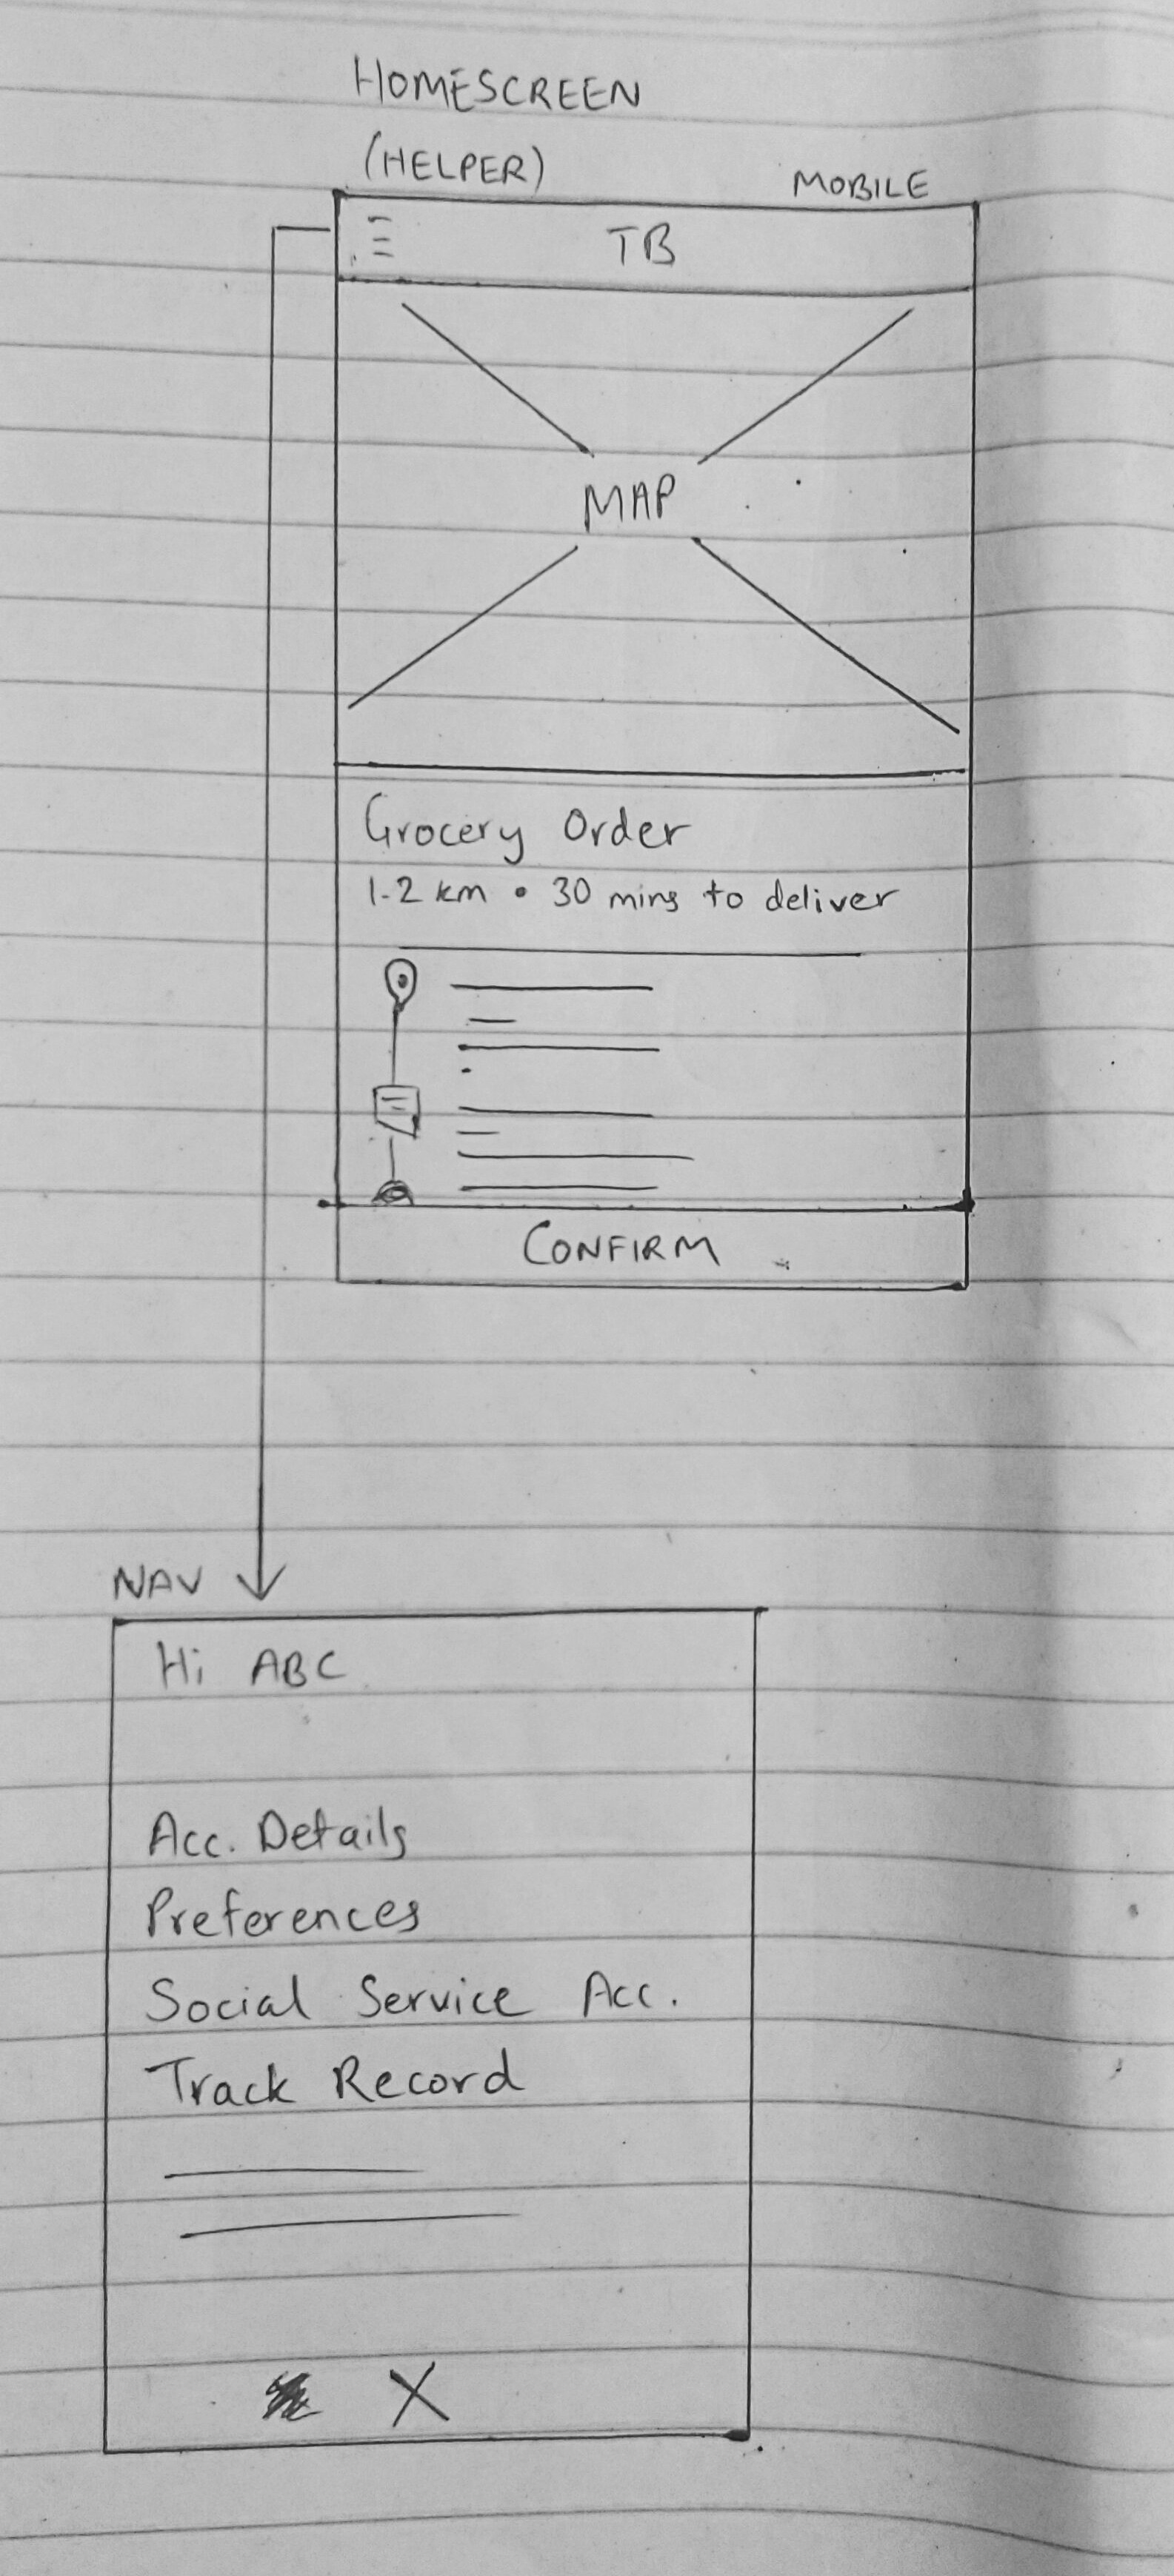 HOMESCREEN
(HELPER)
MOBILE
TB
MAP
Grocery Order
1.2 km • 30 mins to deliver
CONFIRM
NAV
Hi ABC
Acc. Details
Preferences
Social Service Acc.
Track Record
X